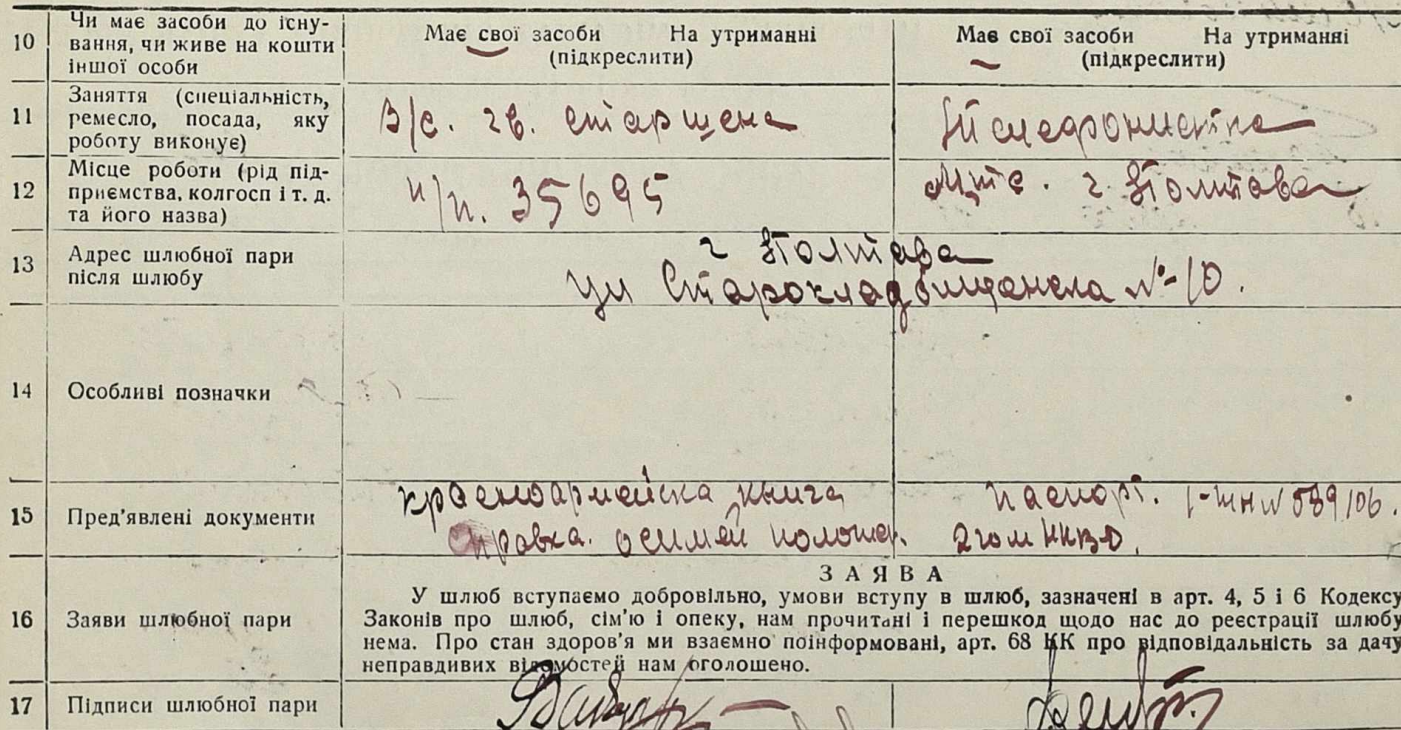 10 Чи має засоби до існу-
вання, чи живе на кошти
іншої особи
Має свої засоби На утриманні
(підкреслити)
Має свої засоби На утриманні
(підкреслити)
11 Заняття (спеціальність,
ремесло, посада, яку
роботу виконує)
В/с. гв. старшена
Телефонистка
12 Місце роботи (рід під-
приємства, колгосп і т. д.
та його назва)
п/п. 35695
г Полтава
13 Адрес шлюбної пари
після шлюбу
г Полтава
ул Старокладбищенска №-10.
14 Особливі позначки
15 Пред'явлені документи
красноармейска книга
справка. о семей положен.
паспорт. 589106.
2 гом НКВД.
16 Заяви шлюбної пари
ЗАЯВА
У шлюб вступаємо добровільно, умови вступу в шлюб, зазначені в арт. 4, 5 і 6 Кодексу
Законів про шлюб, сім'ю і опеку, нам прочитані і перешкод щодо нас до реєстрації шлюбу
нема. Про стан здоров'я ми взаємно поінформовані, арт. 68 КК про відповідальність за дачу
неправдивих відомостей нам оголошено.
17 Підписи шлюбної пари